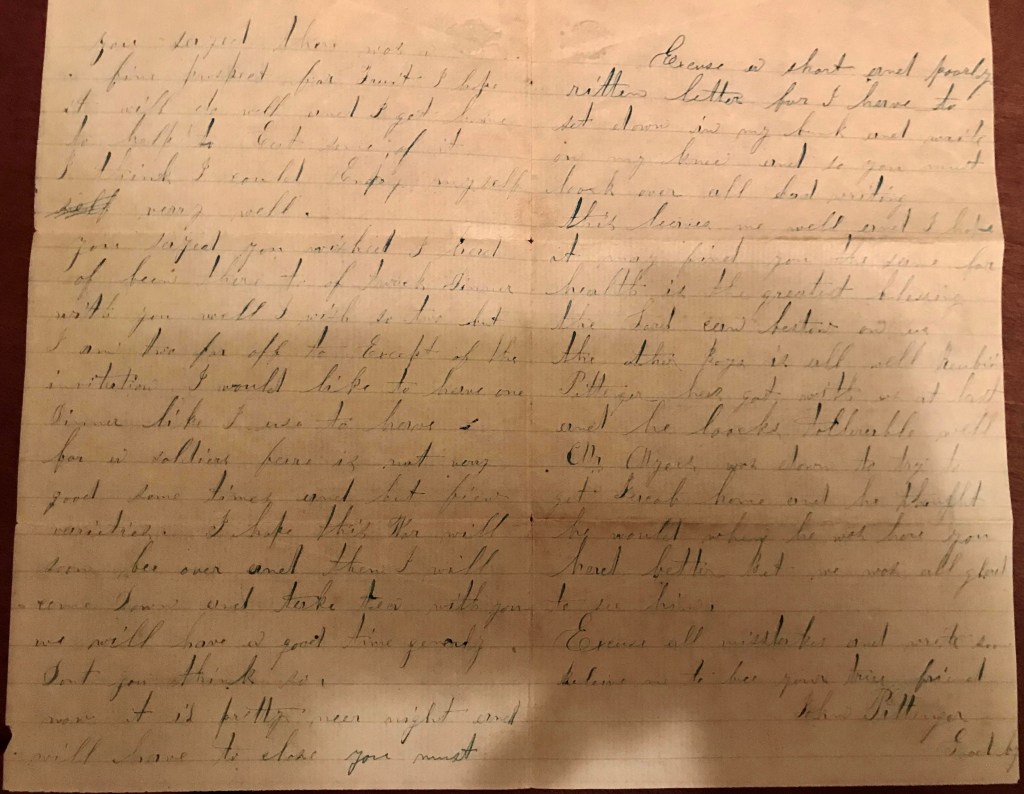 you sayed there was a
fine prospect for Fruit I hope
it will do well and I get home
to help to Eat some of it
I think I could Enjoy myself
very well.
you sayed you wished I had
of bein there to of took dinner
with you well I wish so two but
I am two far off to Except of the
invitation I would like to have one
Dinner like I use to have
for a soldiers fare is not very
good some times and but few
varieties. I hope this War will
soon bee over and then I will
come Down and take tea with you
we will have a good time
Dont you think so.
now it is pretty near night and
will have to close you must
Excuse a short and poorly
ritten letter for I have to
set down in my bunk and write
on my knee and so you must
look over all bad writing
this leaves me well and I hope
it may find you the same for
health is the greatest blessing
the Lord can bestow on us
the other boys is all well
Pittenger has got with us at last
and he loocks tollerable well
Mr Myers was down to try to
get home and he thought
he would when he was here you
herd better but we was all glad
to see him.
Excuse all misstakes and write soon
beleive me to bee your true friend
John Pittenger